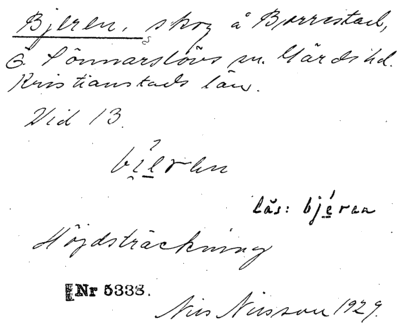 Bjeren, skog å Borrestad,
Ö. Sönnarslövs sn. Gärds hd.
Kristianstads län.
Vid 13.
bi̯é̱ren
läs: bjé̱ren
Höjdsträckning
Nr 5338.
Nils Nilsson 1929.